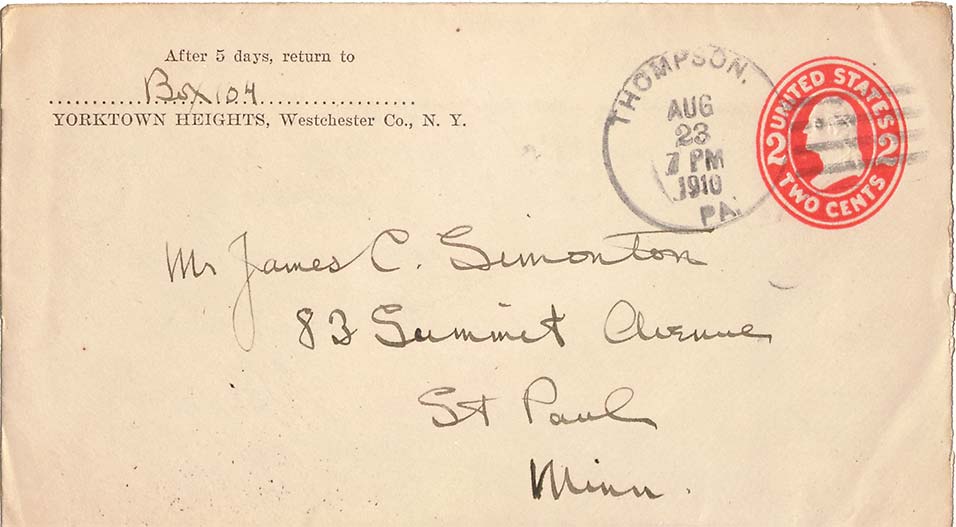 After 5 days, return to
Box 104
YORKTOWN HEIGHTS, Westchester Co., N. Y.
THOMPSON,
AUG
23
7 PM
1910
PA.
UNITED STATES
2 2
TWO CENTS
Mr James C. Simonton
83 Summit Avenue
St Paul
Minn.